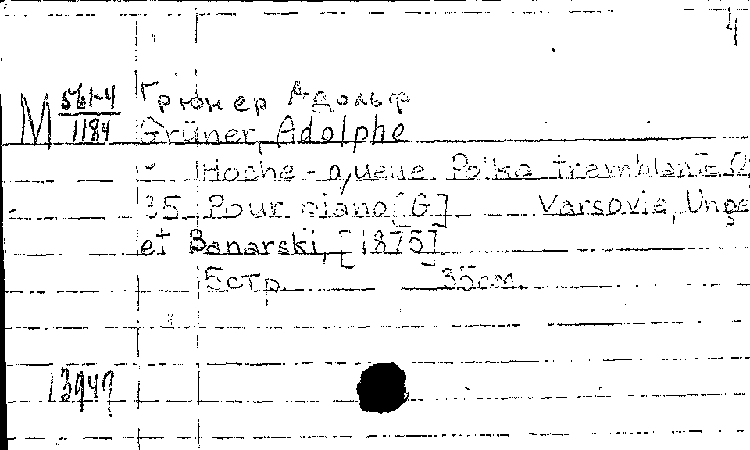 4
М 561-4/1184
Грюнер Адольф
Grüner, Adolphe
Hoche-queue Polka tremblante
35 Pour piano [G] Varsovie, Unge
et Banarski, [1875]
5 стр. 35 см.
13949